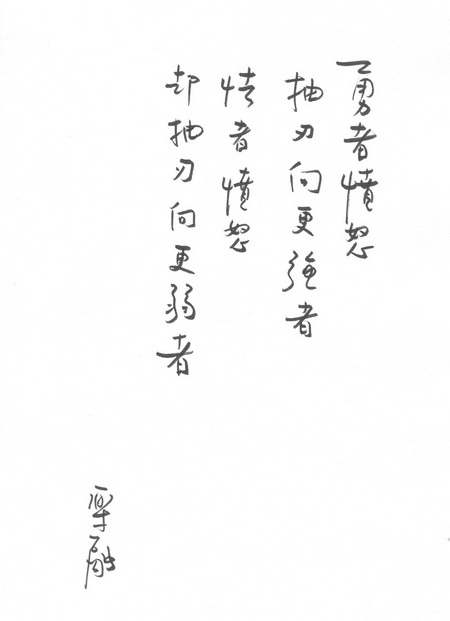 勇者憤怒
抽刃向更強者
怯者憤怒
却抽刃向更弱者
融